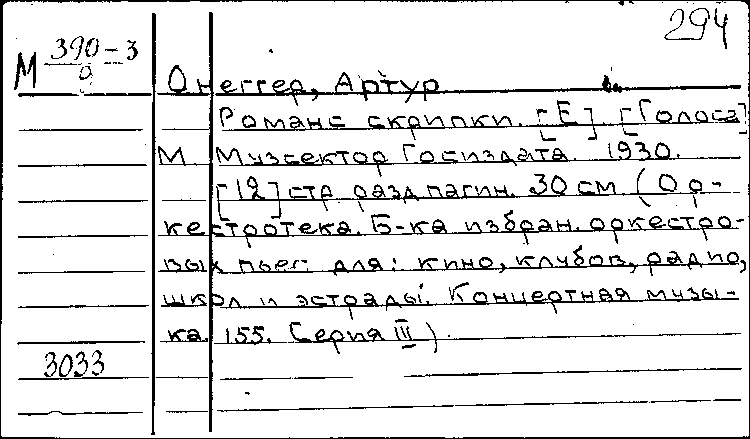 294
М 390-3
9
Онеггер, Артур
Романс скрипки. [Е]. [Голоса]
М. Музсектор Госиздата. 1930.
[12] стр. разд. пагин. 30 см. (Ор-
кестротека. Б-ка избран. оркестро-
вых пьес для: кино, клубов, радио,
школ и эстрады. Концертная музы-
ка. 155. Серия III).
3033